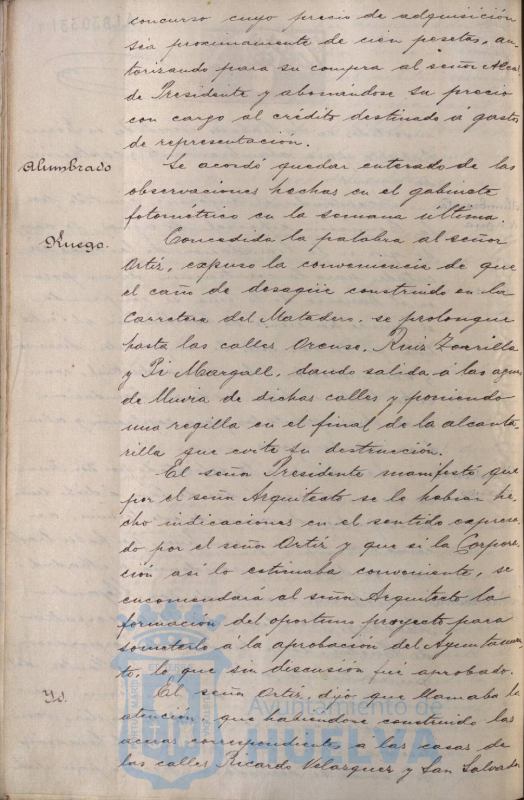 concurso cuyo precio de adquisición
sea proximamente de cien pesetas, au-
torizando para su compra al señor Alcal
de Presidente y abonándose su precio
con cargo al crédito destinado á gastos
de representación.
Alumbrado
Se acordó quedar enterado de las
observaciones hechas en el gabinete
fotométrico en la semana última.
Ruego.
Concedida la palabra al señor
Ortíz, expuso la conveniencia de que
el caño de desagüe construido en la
Carretera del Matadero, se prolongue
hasta las calles Orense, Ruiz Zorrilla
y Pi Margall, dando salida á las aguas
de lluvia de dichas calles y poniendo
una regilla en el final de la alcanta-
rilla que evite su destrucción.
El señor Presidente manifestó que
por el señor Arquitecto se le habían he
cho indicaciones en el sentido expresa
do por el señor Ortíz y que si la Corpora-
ción así lo estimaba conveniente, se
encomendará al señor Arquitecto la
formación del oportuno proyecto para
someterlo á la aprobación del Ayuntamien
to, lo que sin discusión fué aprobado.
Yd.
El señor Ortíz, dijo que llamaba la
atención, que habiéndose construido las
aceras correspondientes a las casas de
las calles Ricardo Velazquez y San Salvador
Ayuntamiento de
HUELVA